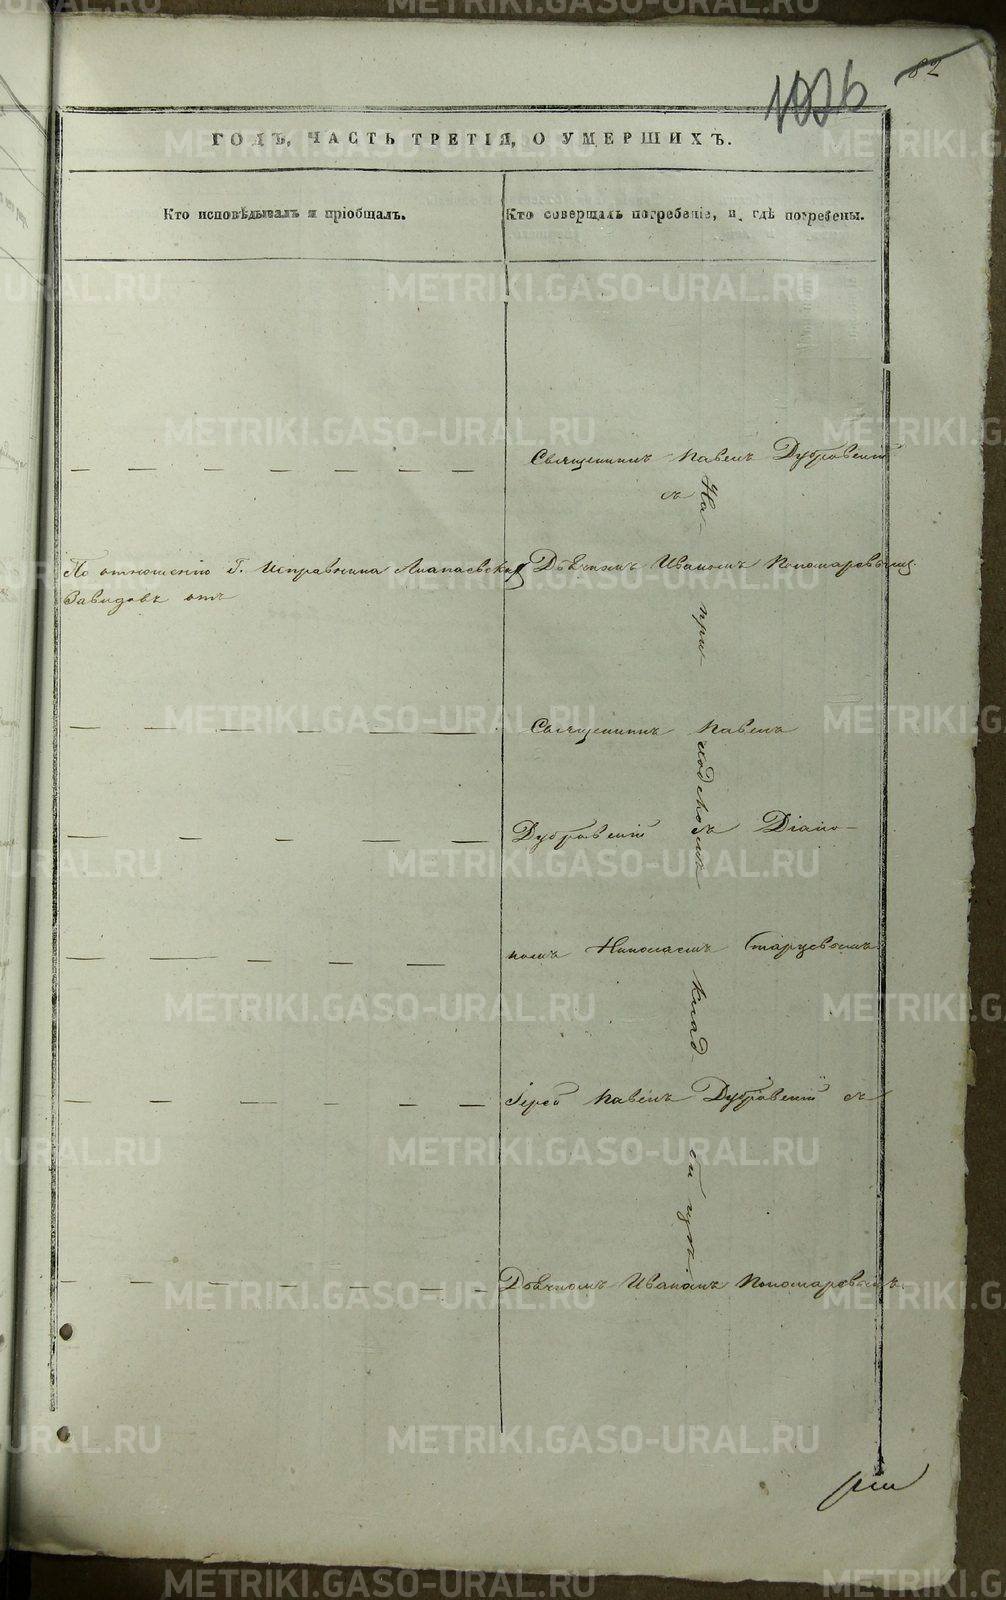 82
1026
ГОДЪ, ЧАСТЬ ТРЕТІЯ, О УМЕРШИХЪ.
Кто исповѣдывалъ и пріобщалъ.
Кто совершалъ погребеніе, и гдѣ погребены.
Священникъ Павелъ Дубровскій
съ
По отношенію Г. Исправника Алапаевскихъ
Заводовъ отъ
Дьячкомъ Иваномъ Пономаревымъ
Священникъ Павелъ
Дубровскій съ Діако-
номъ Николаемъ
Іерей Павелъ Дубровскій съ
Дьячкомъ Иваномъ Пономаревымъ
На
при
ходскомъ
клад
METRIKI.GASO-URAL.RU